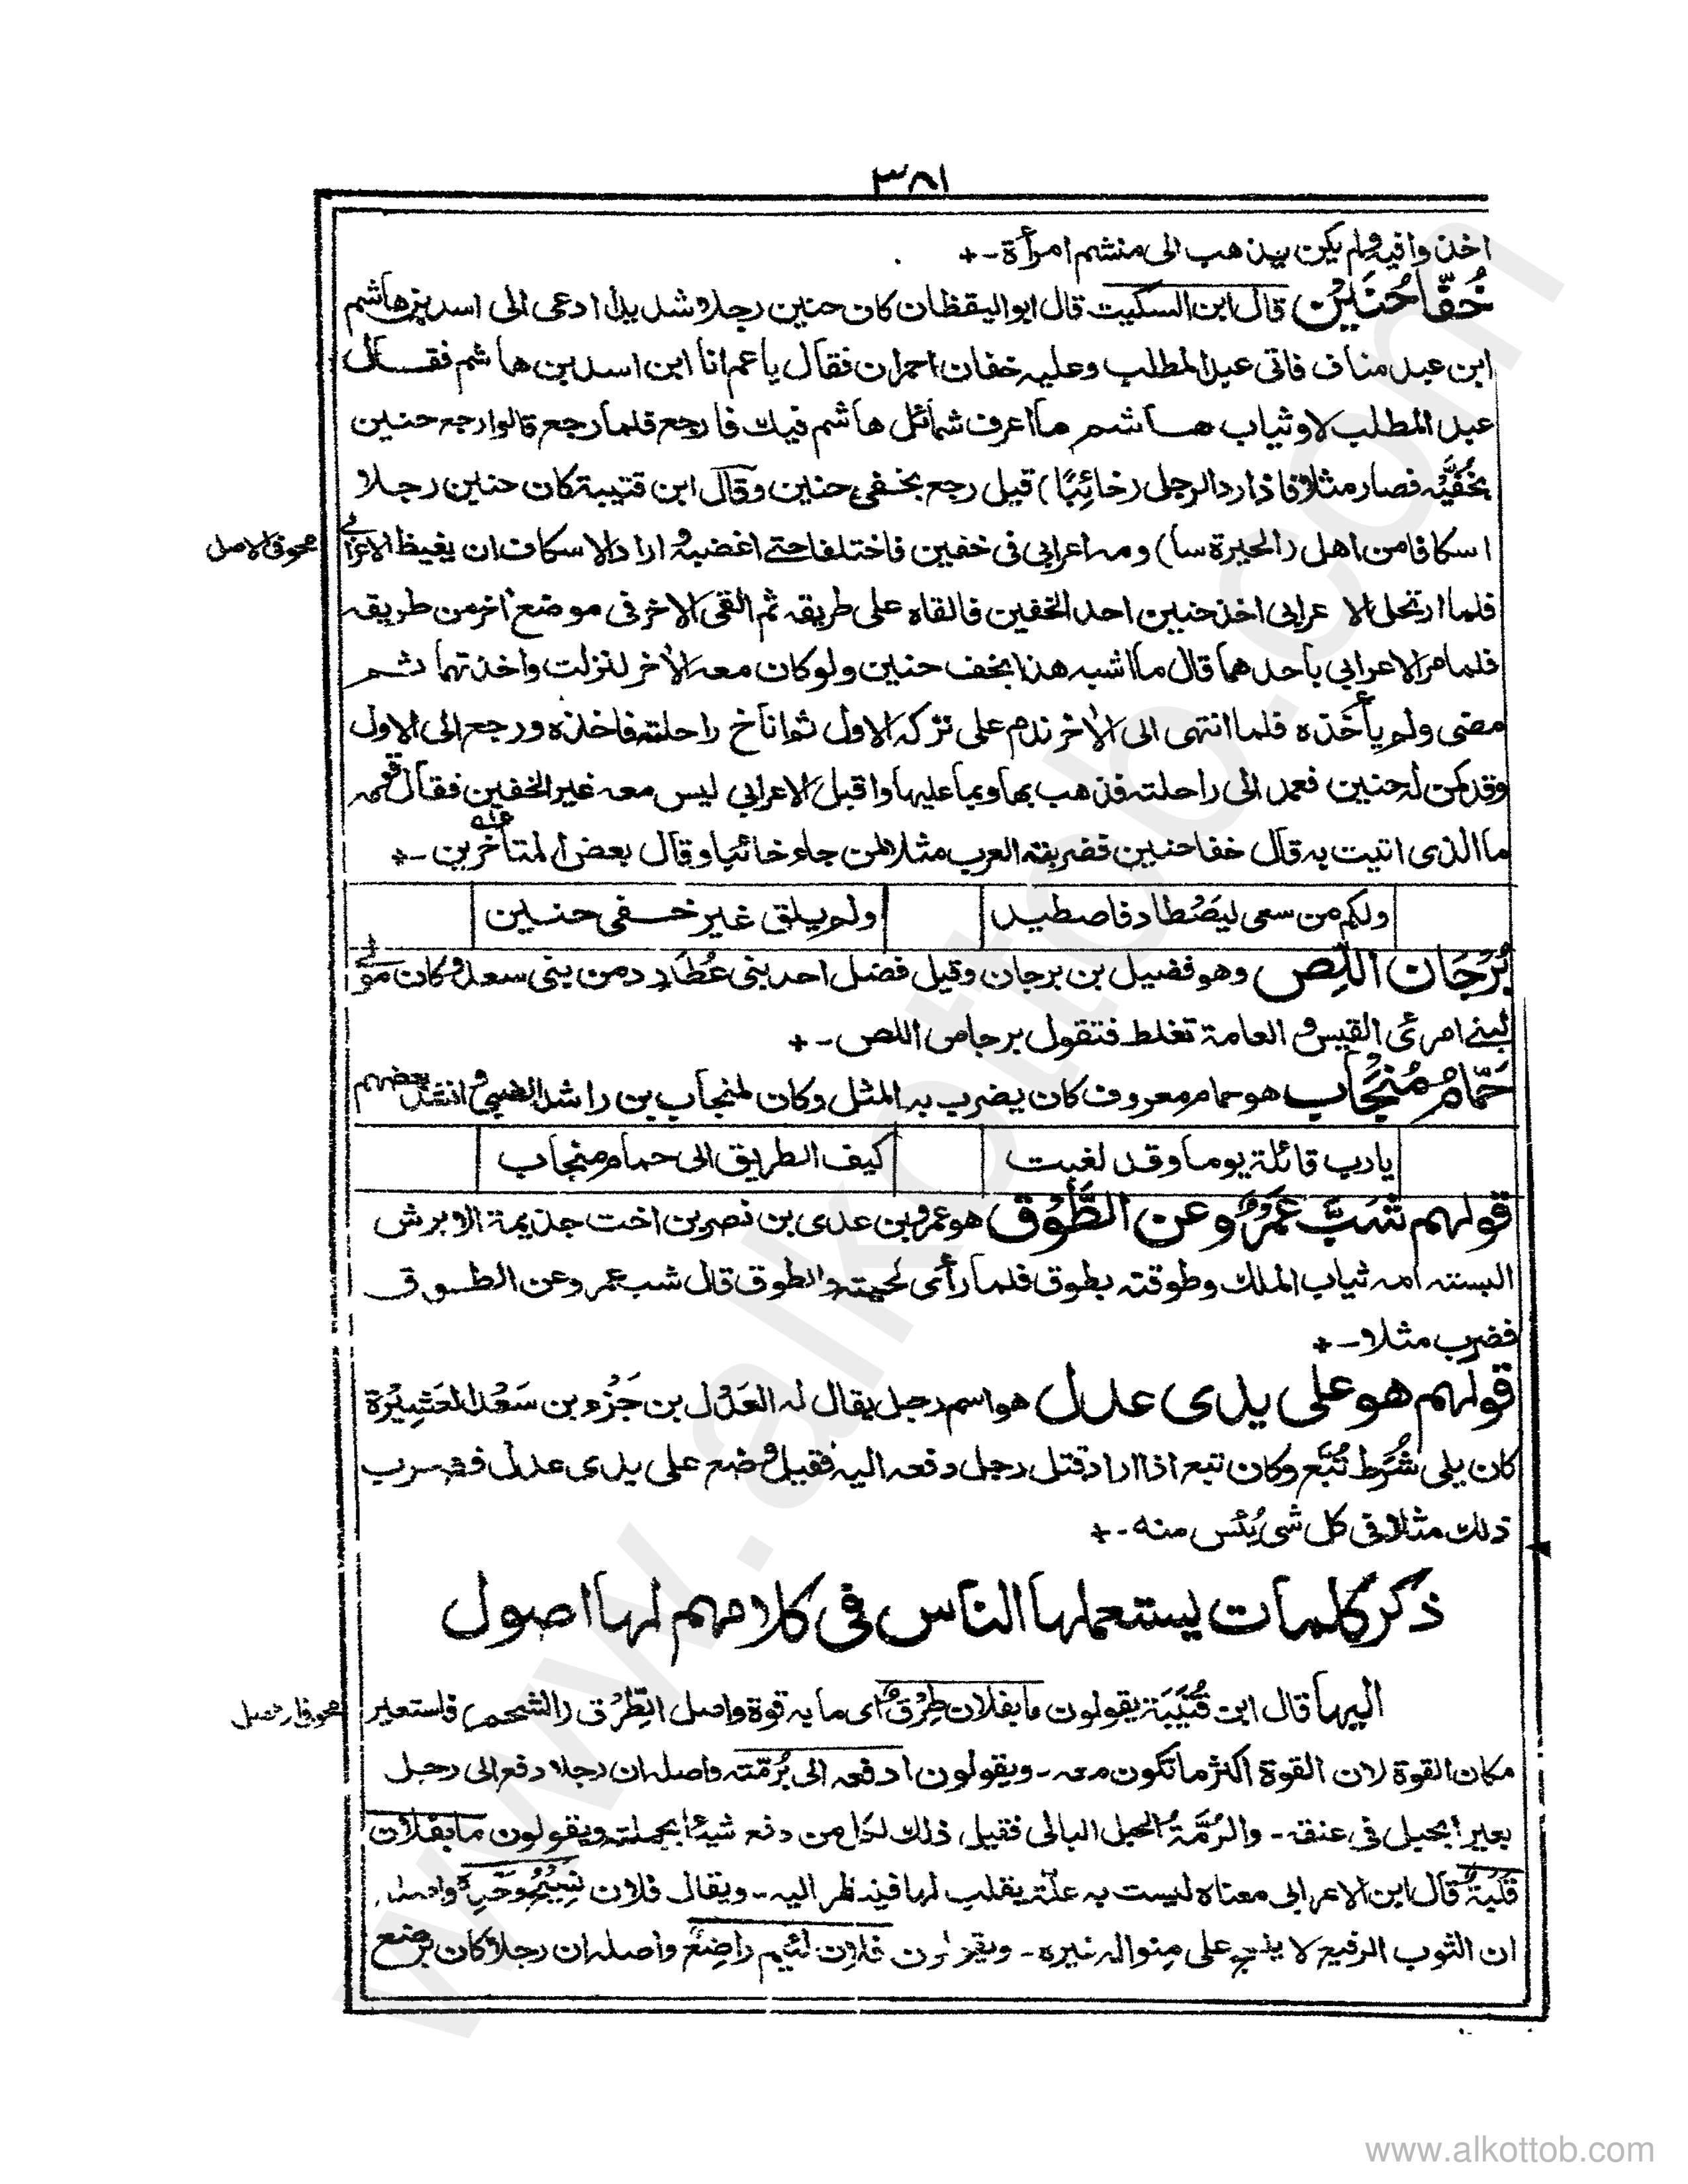 ٣٨١
اخذوا فيه ولم يكن يذهب الى منشم امرأة -+
خُفَّا حُنَيْن قال ابن السكيت قال ابو اليقظان كان حنين رجلا شديدا ادعى الى اسد بن هاشم
ابن عبد مناف فاتى عبد المطلب وعليه خفان احمران فقال يا عم انا ابن اسد بن هاشم فقال
عبد المطلب لا وثياب هاشم ما اعرف شمائل هاشم فيك فارجع فلما رجع قالوا رجع حنين
بخُفَّيْه فصار مثلا فاذا رد الرجل (خائِبًا) قيل رجع بخفي حنين وقال ابن قتيبة كان حنين رجلا
اسكافا من اهل (الحيرة سا) ومه اعرابي فى خفين فاختلفا حتى اغضبه و اراد الاسكاف ان يغيظ الاعرابي
محو فى الاصل
فلما ارتحل الاعرابي اخذ حنين احد الخفين فالقاه على طريقه ثم القى الاخر فى موضع اخر من طريقه
فلما مر الاعرابي بأحدهما قال ما اشبه هذا بخف حنين ولو كان معه الاخر لنزلت واخذتهما ثم
مضى ولم يأخذه فلما انتهى الى الاخر ندم على تركه الاول ثم اناخ راحلته فاخذه ورجع الى الاول
وقد كمن له حنين فعمد الى راحلته فذهب بها وبما عليها واقبل الاعرابي ليس معه غير الخفين فقال قومه
ما الذى اتيت به قال خفا حنين فضربته العرب مثلا لمن جاء خائبا وقال بعض المتأخرين -+
ولكم من سعى ليَصْطاد فاصطيد ولم يلق غير خفى حنين
بُرْجَان اللِص وهو فضيل بن برجان وقيل فضل احد بنى عُطَارد من بنى سعد وكان مولى
لبنے امرئ القيس و العامة تغلط فتقول برجاص اللص -+
حَمَّامُ مُنْجَاب هو حمام معروف كان يضرب به المثل وكان لمنجاب بن راشد الضبي و انشد بعضهم
يا رب قائلة يوما وقد لغبت كيف الطريق الى حمام منجاب
قولهم شَبَّ عَمْرٌو عن الطَّوْق هو عمرو بن عدى بن نصر بن اخت جذيمة الابرش
البسته امه ثياب الملك وطوقته بطوق فلما رأى لحيته والطوق قال شب عمرو عن الطوق
فضرب مثلا -+
قولهم هو على يدى عدل هو اسم رجل يقال له العَدْل بن جَزْء بن سَعْد العَشِيْرة
كان يلى شُرَط تُبَّع وكان تبع اذا اراد قتل رجل دفعه اليه فقيل وضع على يدى عدل فضرب
ذلك مثلا فى كل شى يُئس منه -+
ذكر كلمات يستعملها الناس فى كلامهم لها اصول
اليها قال ابن قُتَيْبَة يقولون ما بفلان طِرْقٌ اى ما به قوة واصل الطِّرْق (الشحم) فاستعير
مكان القوة لان القوة اكثر ما تكون معه - ويقولون ادفعه الى بُرمّته واصله ان رجلا دفع الى رجل
بعيرا بحبل فى عنقه - والرُمَّة الحبل البالى فقيل ذلك لكل من دفع شيئا بجملته ويقولون ما بفلان
قَلَبَةٌ قال ابن الاعرابى معناه ليست به علّة يقلب لها فينظر اليه - ويقال فلان نَسِيْجُ وَحْدِه واصله
ان الثوب الرفيع لا ينسج على منواله غيره - ويقولون فلان لئيم راضِعٌ واصله ان رجلا كان يرضع
www.alkottob.com
www.alkottob.com